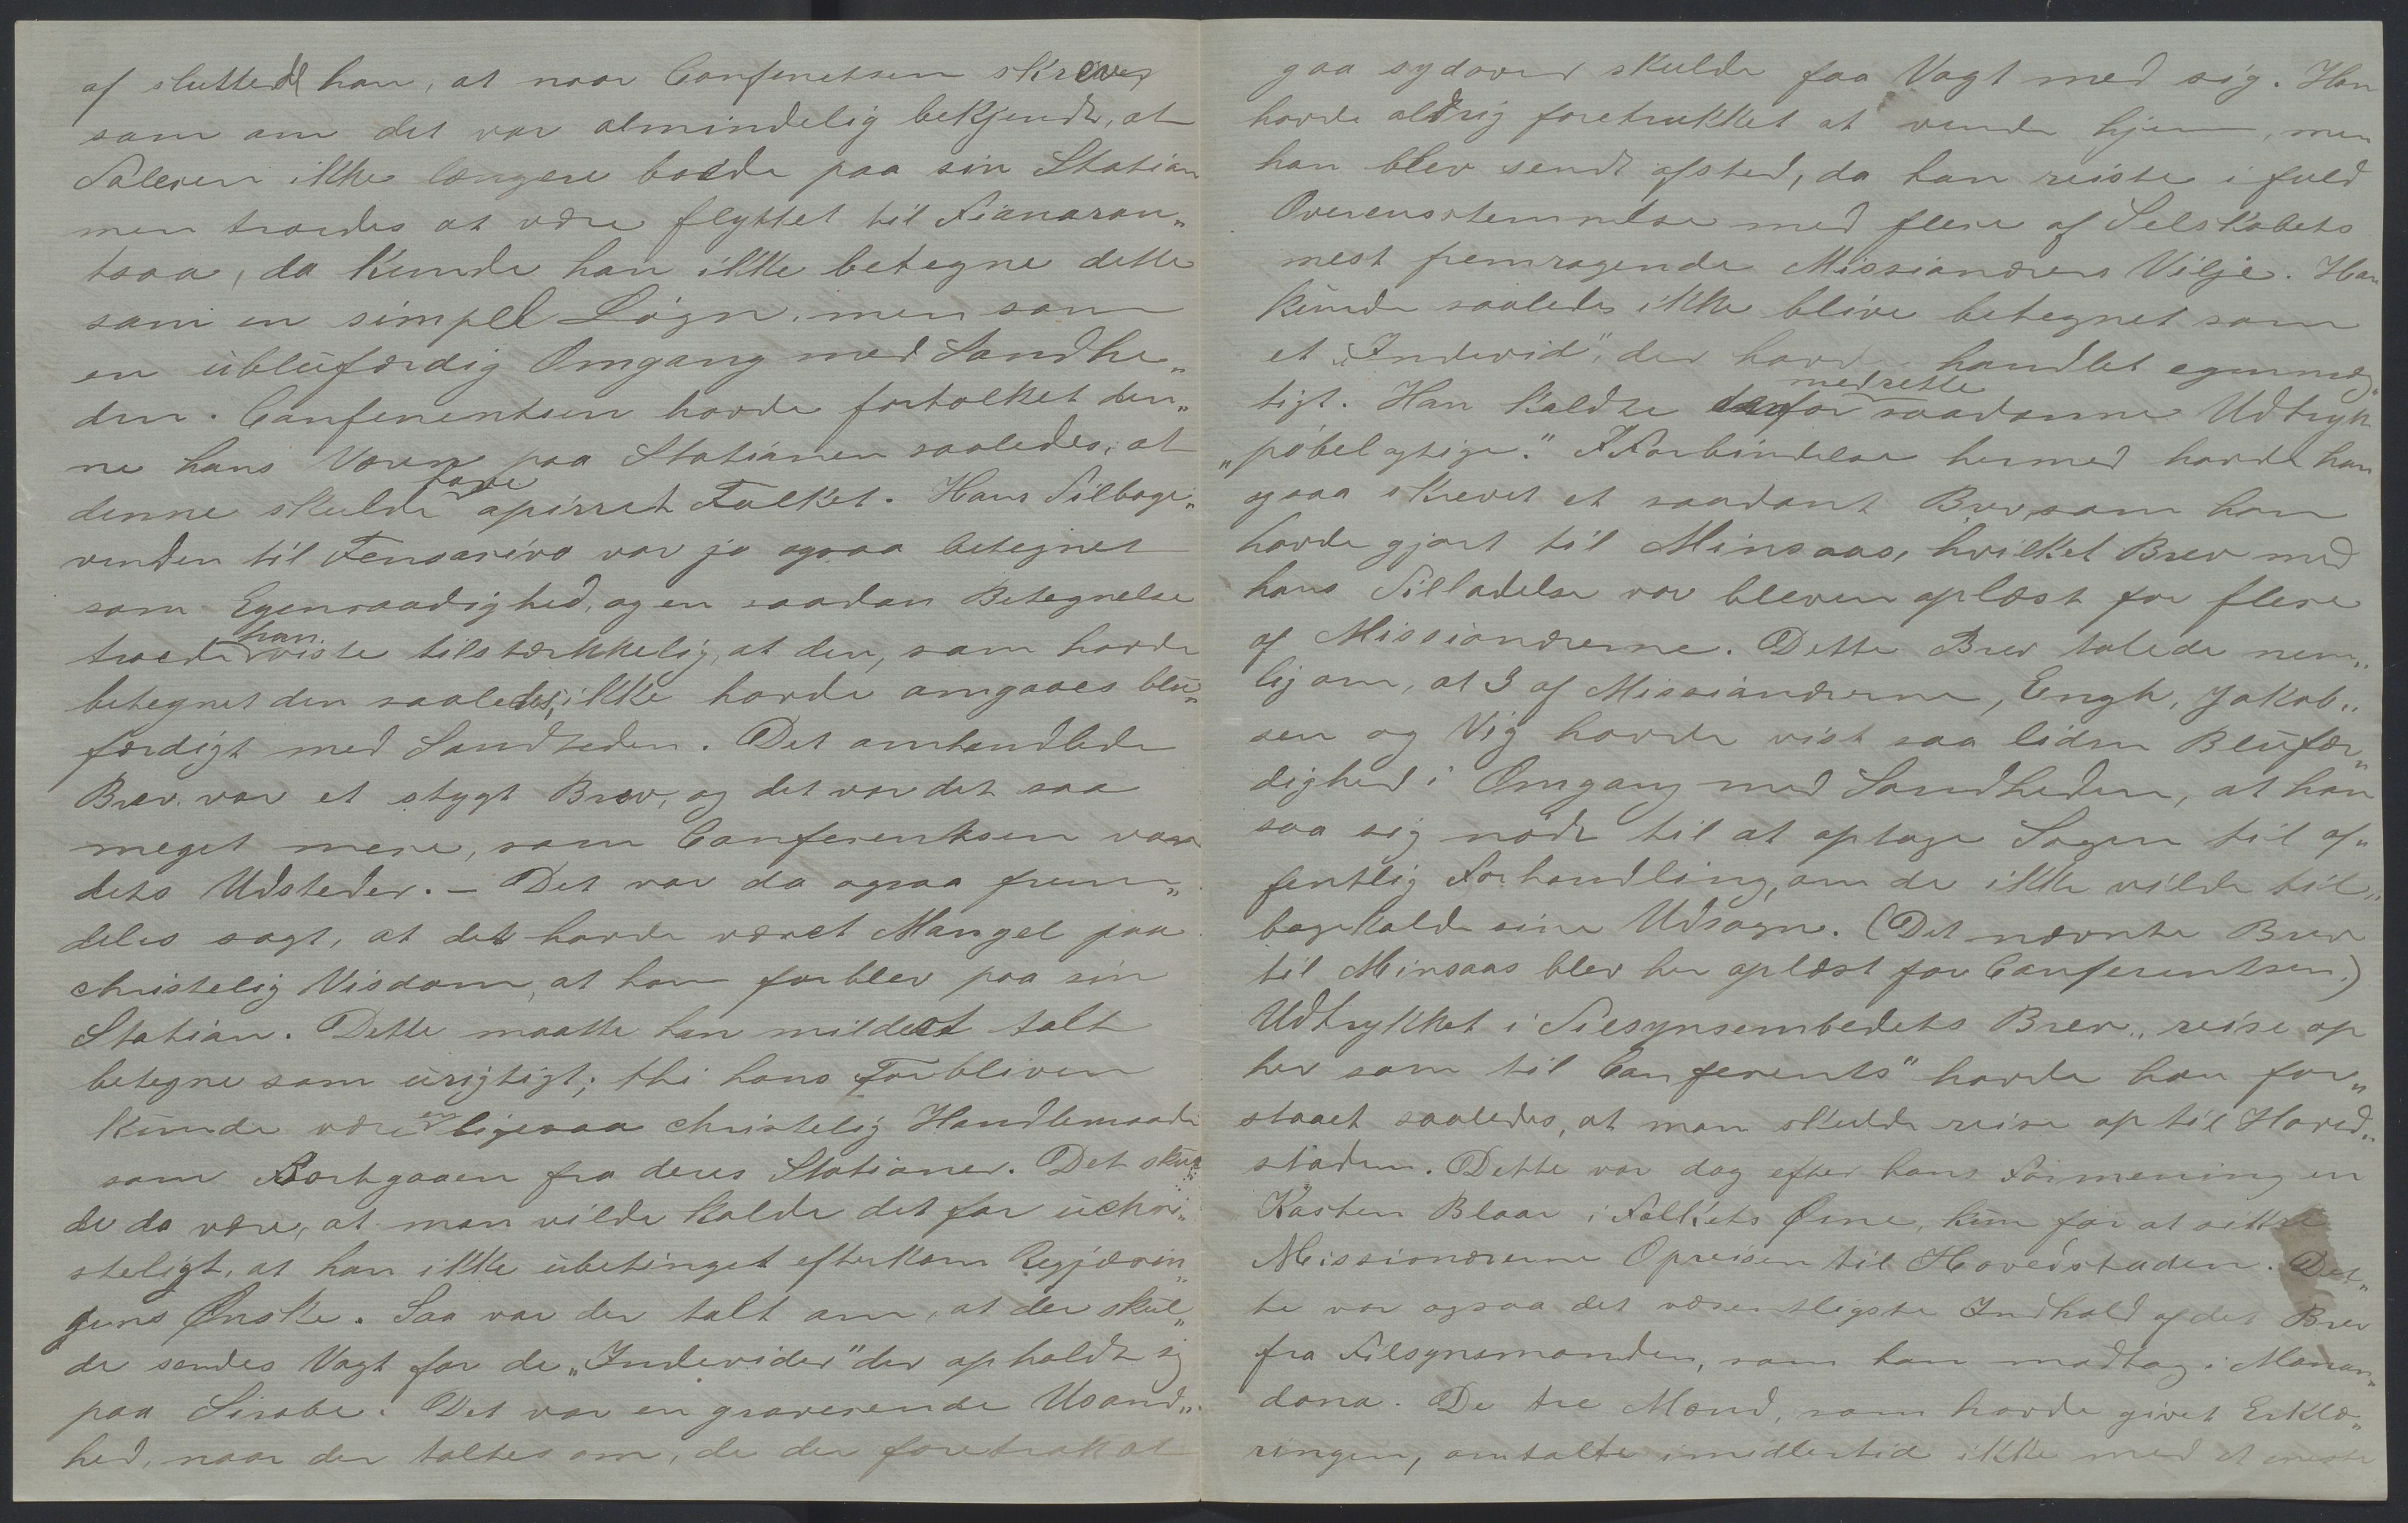 af sluttede han, at naar Conferentsen skrev
som om det var almindelig bekjendt, at
Taleren ikke længere boede paa sin Station
men troedes at være flyttet til Fianaran„
tsoa, da kunde han ikke betegne dette
som en simpel Løgn, men som
en ublufærdig Omgang med Sandhe„
den. Conferentsen havde fortolket den„
ne hans Væren paa Stationen saaledes, at
denne skulde have opirret Folket. Hans Tilbage„
venden til Fenoarivo var jo ogsaa betegnet
som Egenraadighed, og en saadan Betegnelse
troede han viste tilstrækkelig, at den, som havde
betegnet den saaledes, ikke havde omgaaes blu„
færdigt med Sandheden. Det omhandlede
Brev var et stygt Brev, og det var det saa
meget mere, som Conferentsen var
dets Udsteder. – Det var da ogsaa frem„
deles sagt, at det havde været Mangel paa
christelig Visdom, at han forblev paa sin
Station. Dette maatte han mildest talt
betegne som urigtigt; thi hans Forbliven
kunde være en ligesaa christelig Handlemaade
som Bortgaaen fra deres Stationer. Det skul„
de da være, at man vilde kalde det for uchri„
steligt, at han ikke ubetinget efterkom Regjærin„
gens Ønske. Saa var der talt om, at der skul„
de sendes Vagt for de „Individer" der opholdt sig
paa Sirabe. Det var en graverende Usand„
hed, naar der taltes om, de der foretrak at
gaa sydover skulde faa Vagt med sig. Han
havde aldrig foretrukket at vende hjem, men
han blev sendt afsted, da han reiste i fuld
Overensstemmelse med flere af Selskabets
mest fremragende Missionærers Vilje. Han
kunde saaledes ikke blive betegnet som
et „Individ", der havde handlet egenmæg„
tigt. Han kaldte derfor medrette saadanne Udtryk
„pøbelagtige". I Forbindelse hermed havde han
ogsaa skrevet et saadant Brev, som han
havde gjort til Minsaas, hvilket Brev med
hans Tilladelse var bleven oplæst for flere
af Missionærerne. Dette Brev talede nem„
lig om, at 3 af Missionærerne, Engh, Jakob„
sen og Vig havde vist saa liden Blufær„
dighed i Omgang med Sandheden, at han
saa sig nødt til at optage Sagen til of„
fentlig Forhandling, om de ikke vilde til„
bagekalde sine Udsagn. (Det nævnte Brev
til Minsaas blev her oplæst for Conferentsen.)
Udtrykket i Tilsynsembedets Brev „reise op
her som til Conferents" havde han for„
staaet saaledes, at man skulde reise op til Hoved„
staden. Dette var dog efter hans Formening en
Kasten Blaar i Folkets Øine, kun for at sikkre
Missionærerne Opreisen til Hovedstaden. Det„
te var ogsaa det væsentligste Indhold af det Brev
fra Tilsynsmanden, som han modtog i Manan„
dona. De tre Mænd, som havde givet Erklæ„
ringen, omtalte imidlertid ikke med et eneste